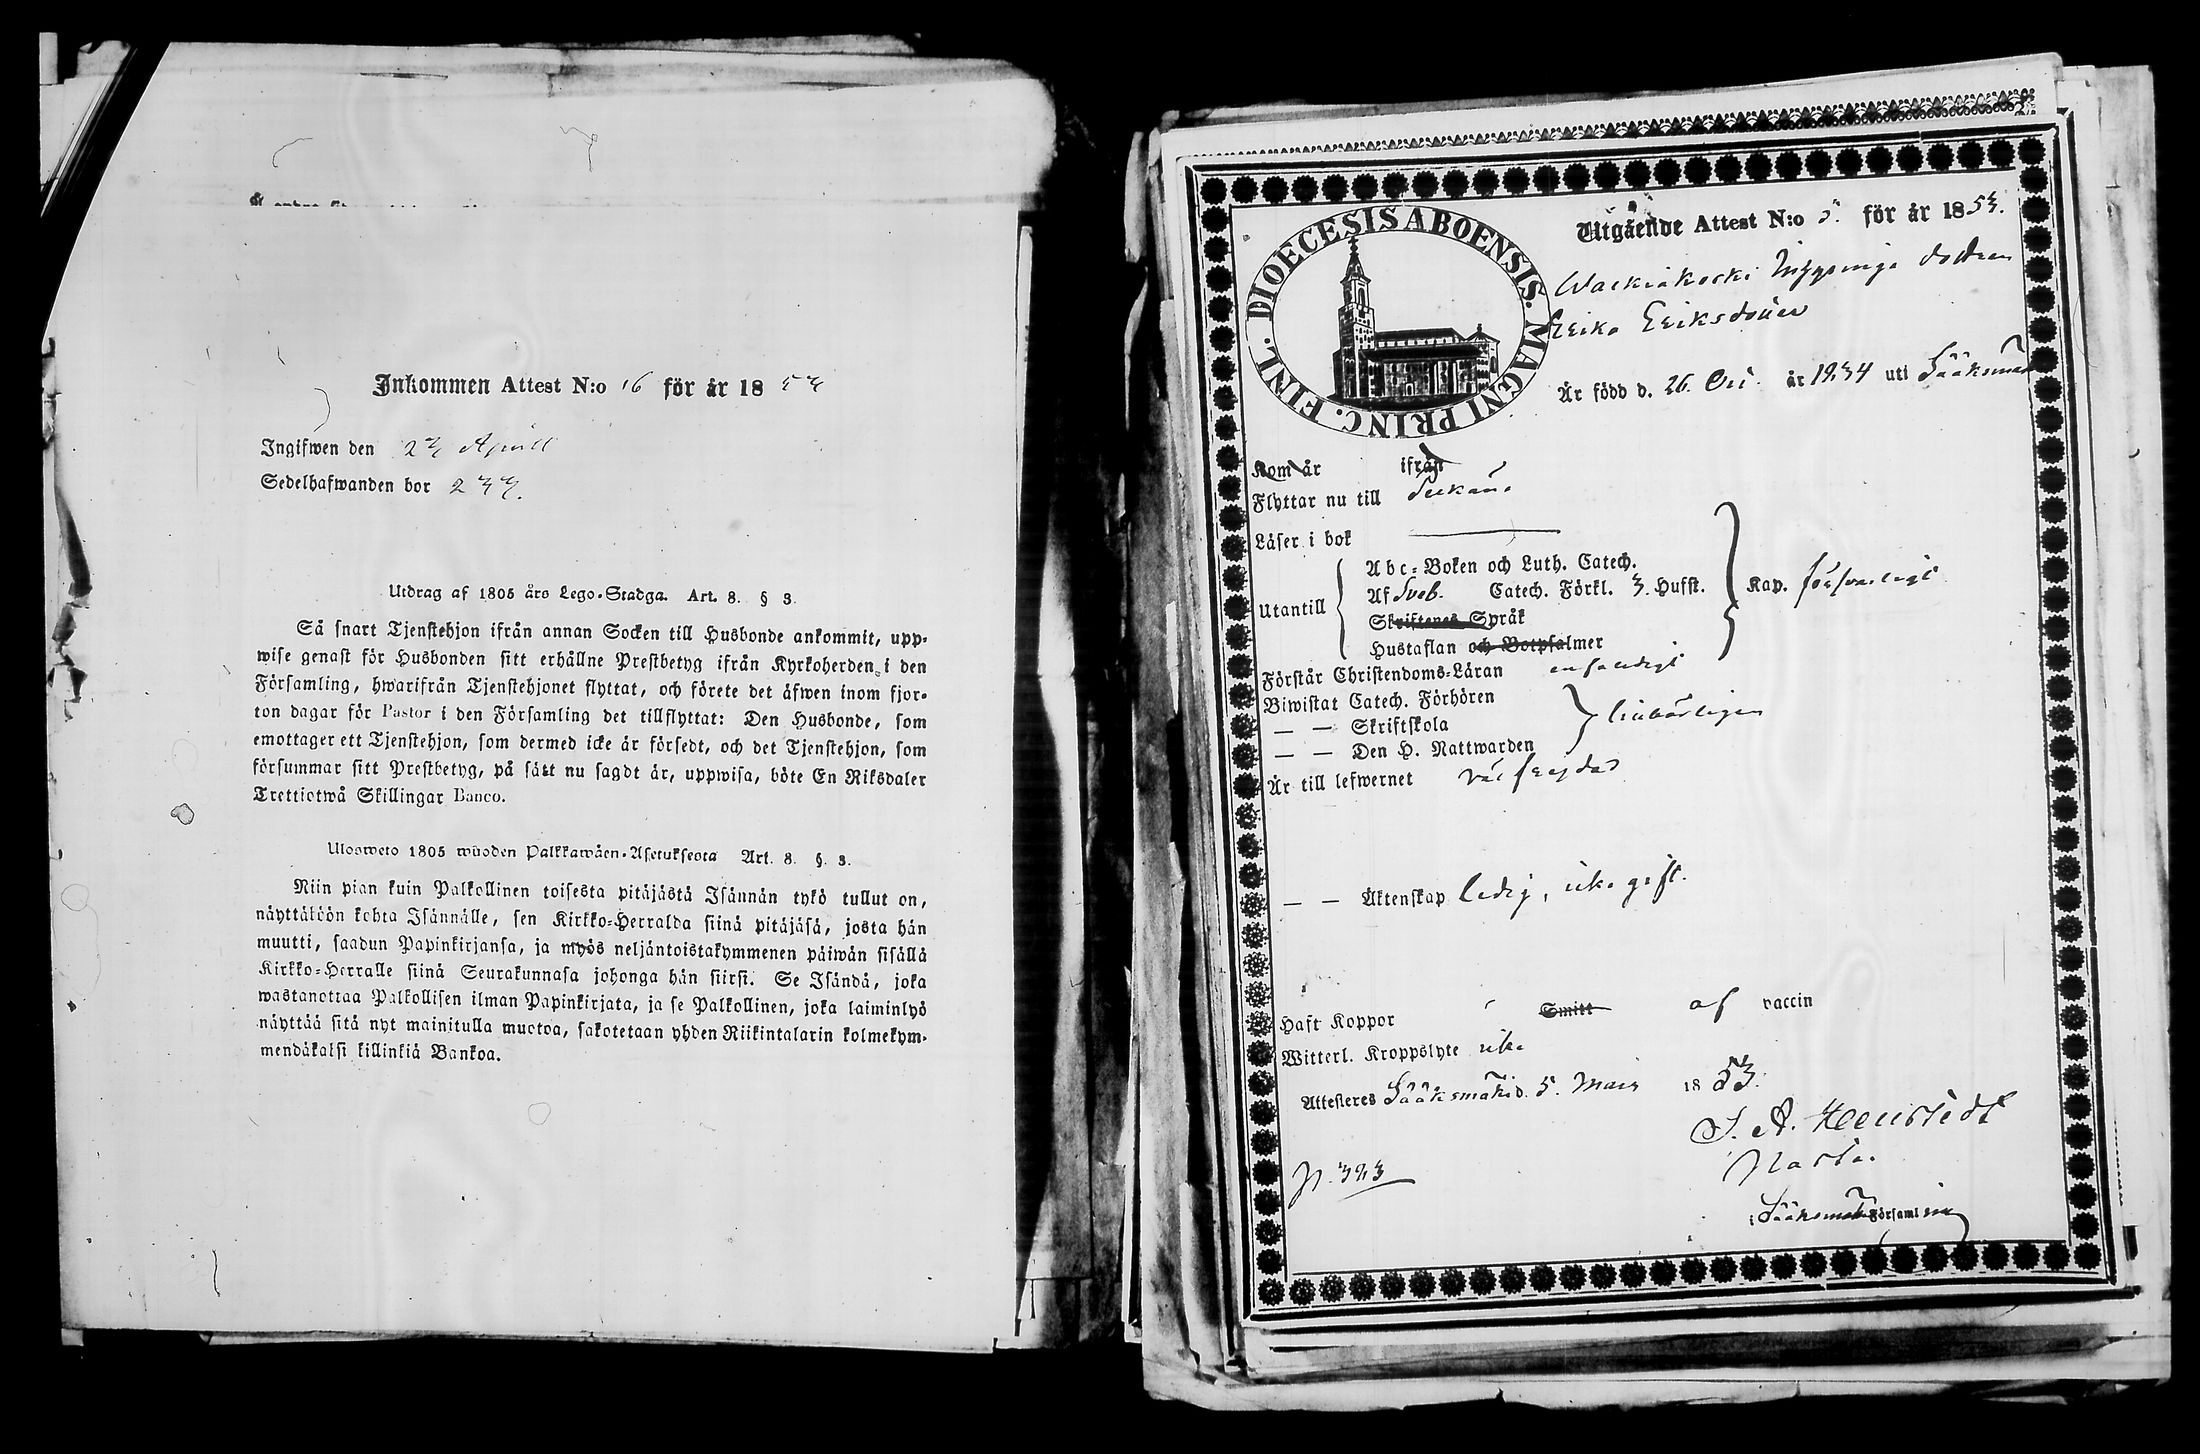 Inkommen Attest N:o 16 för år 18 53
Ingifwen den 23 Aprill
Sedelhafwanden bor 233.
Utdrag af 1805 års Lego-Stadga. Art. 8. § 3.
Så snart Tjenstehjon ifrån annan Socken till Husbonde ankommit, upp-
wise genast för Husbonden sitt erhållne Prestbetyg ifrån Kyrkoherden i den
Församling, hwarifrån Tjenstehjonet flyttat, och förete det äfwen inom fjor-
ton dagar för Pastor i den Församling det tillflyttat: Den Husbonde, som
emottager ett Tjenstehjon, som dermed icke är försedt, och det Tjenstehjon, som
försummar sitt Prestbetyg, på sätt nu sagdt är, uppwisa, böte En Riksdaler
Trettiotwå Skillingar Banco.
Ulosweto 1805 wuoden Palkkawäen-Asetuksesta Art. 8. §. 3.
Niin pian kuin Palkollinen toisesta pitäjästä Isännän tykö tullut on,
näyttäköön kohta Isännälle, sen Kirkko-Herralda siinä pitäjäsä, josta hän
muutti, saadun Papinkirjansa, ja myös neljäntoistakymmenen päiwän sisällä
Kirkko-Herralle siinä Seurakunnasa johonga hän siirsi. Se Isändä, joka
wastanottaa Palkollisen ilman Papinkirjata, ja se Palkollinen, joka laiminlyö
näyttää sitä nyt mainitulla muotoa, sakotetaan yhden Riikintalarin kolmekym-
mendäkaksi killinkiä Bankoa.
DIOECESIS ABOENSIS. MAGNI PRINC. FINL.
Utgående Attest N:o 5. för år 1853.
dottren
Eriksdotter
Är född d. 26. är 1834 uti Sääksmäki
Kom år ifrån
Flyttar nu till
Läser i bok
Utantill
Abc-Boken och Luth. Catech.
Af Sveb. Catech. Förkl. 3. Hufst. Kap. försvarligt
Skriftenes Språk
Hustaflan och Botpsalmer
Förstår Christendoms-Läran enfaldigt
Biwistat Catech. Förhören
— — Skriftskola
— — Den H. Nattwarden
Är till lefwernet väl frejdad
— — Äktenskap ledig, icke gift.
Haft Koppor Smitt af vaccin
Witterl. Kroppslyte icke
Attesteres Sääksmäki d. 5. Mars 1853.
Pastor
p. 323
i Sääksmäki Församling